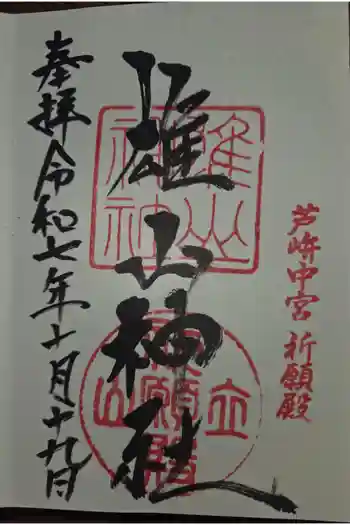 芦峅中宮 祈願殿
雄山神社
奉拝 令和七年十月十九日
雄山
神社
立山
祈願殿